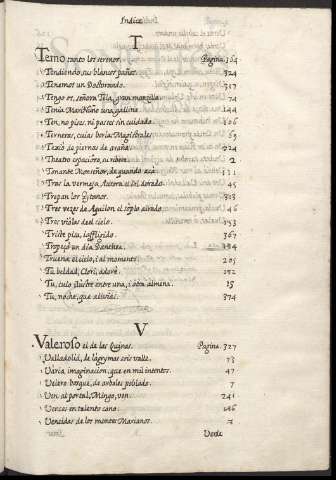 Indice
T
Temo tanto los serenos. Pagina. 364
Tendiendo sus blancos paños. 324
Tenemos un Doctorando. 317
Tengo os, señora Tela, gran mancilla. 74
Tenia Mari Nuño una gallina 244
Ten, no pises, ni passes sin cuidado. 106
Terneras, cuias borlas Magistrales 69
Texió de piernas de araña. 224
Theatro espacioso, su ribera. 2
Tonante Monseñor, de quando acá 111
Tras la vermeja Aurora el Sol dorado. 45
Trepan los Gitanos. 313
Tres vezes de Aquilon, el soplo airado. 46
Tres violas del cielo. 153
Triste pisa, i affligido. 367
Tropeçó un dia Dantchea. 184
Truena el cielo, i al momento. 205
Tu beldad, Clori, adoré. 192
Tu, cuio ilustre entre una, i otra almena. 15
Tu, noche, que alivias. 374
V
Valeroso el de las Quinas. Pagina. 327
Valladolid, de lagrymas sois valle. 73
Varia, imaginacion, que en mil intentos. 47
Velero bosque, de arboles poblado. 7
Ven al portal, Mingo, ven. 241
Vences en talento cano. 186
Vencidas de los montes Marianos. 7
Verde